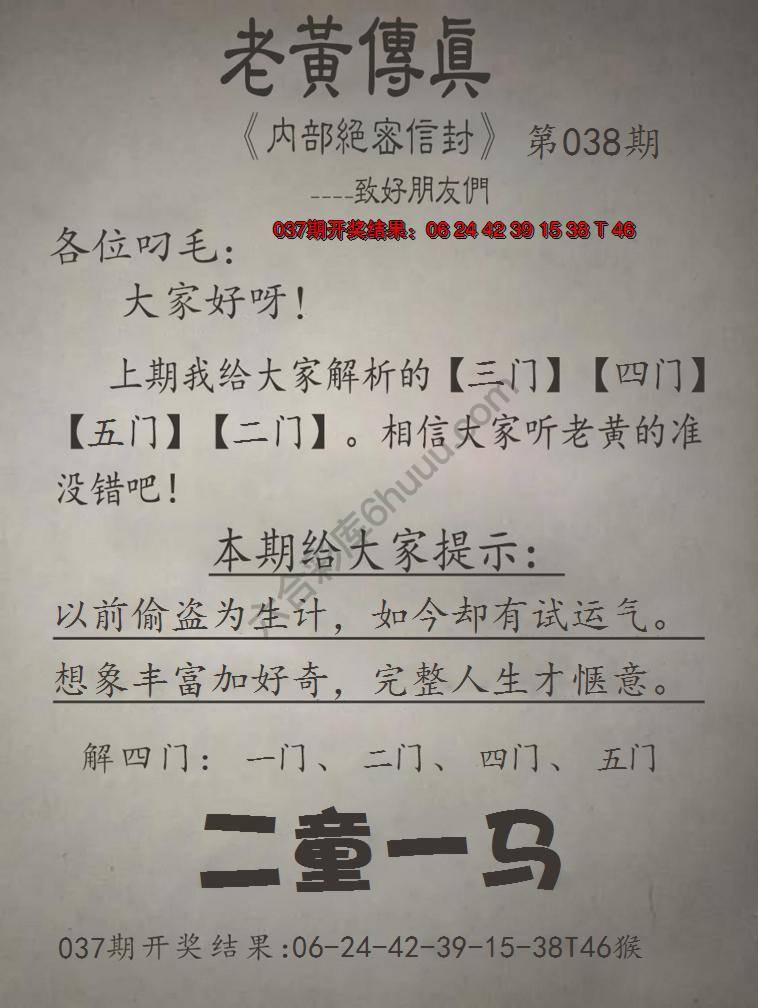 老黃傳眞
《内部絕密信封》 第038期
----致好朋友們
037期开奖结果：06 24 42 39 15 38 T 46
各位叼毛：
大家好呀！
上期我给大家解析的【三门】【四门】
【五门】【二门】。相信大家听老黄的准
没错吧！
本期给大家提示：
以前偷盗为生计，如今却有试运气。
想象丰富加好奇，完整人生才惬意。
解四门：一门、二门、四门、五门
二童一马
037期开奖结果:06-24-42-39-15-38T46猴
六合彩库6huuu.com